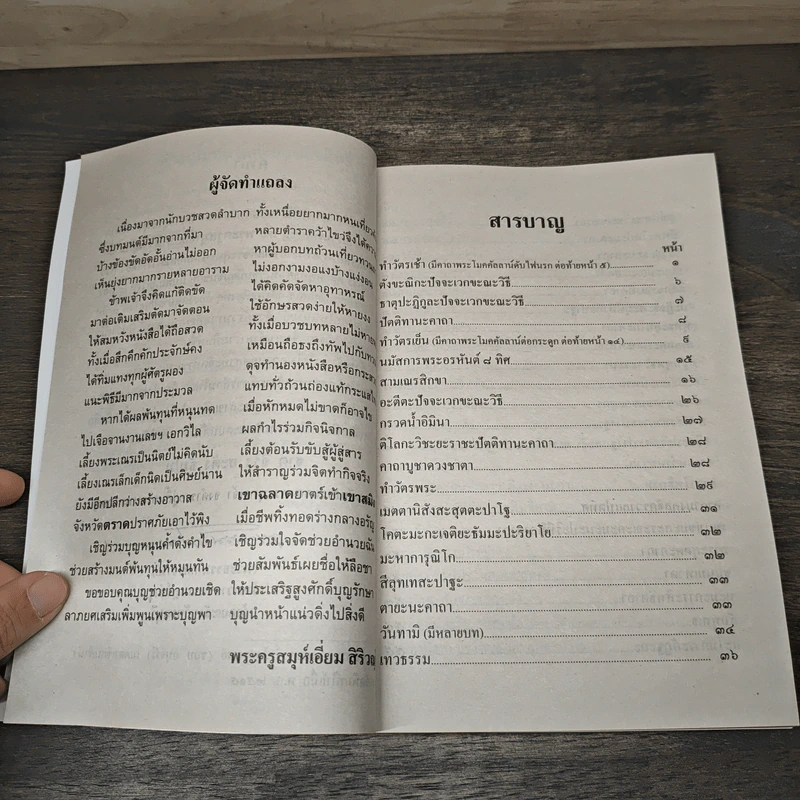 ผู้จัดทำแถลง
เนื่องมาจากนักบวชสวดลำบาก ทั้งเหนื่อยยากมากหนเที่ยว
ซึ่งบทมนต์มีมากจากที่มา หลายตำราคว้าไขว่จึงได้
บ้างข้องขัดอัดอั้นอ่านไม่ออก หาผู้บอกบทถ้วนเที่ยว
เห็นยุ่งยากมากรายหลายอาราม ไม่งอกงามงอแงบ้างแง่งอน
ข้าพเจ้าจึงคิดแก้ติดขัด ได้คิดคัดจัดหาอุทาหรณ์
มาต่อเติมเสริมตัดมาจัดตอน ใช้อักษรสวดง่ายให้หายงง
ให้สมหวังหนังสือได้ถือสวด ทั้งเมื่อบวชบทหลายไม่
ทั้งเมื่อสึกคึกคักประจักษ์คง เหมือนถือธงถึงทัพไปกับ
ได้ทิ่มแทงทุกผู้ศัตรูผอง ดุจทำนองหนังสือหรือ
แนะพิธีมีมากจากประมวล แทบทั่วถ้วนถ่องแท้
หากได้ผลพ้นทุนที่หนุนทด เมื่อหักหมดไม่ขาดก็อาจไข
ไปเจือจานงานเลขฯ เอกวิไล ผลกำไรร่วมกิจนิจกาล
เลี้ยงพระเณรเป็นนิตย์ไม่คิดนับ เลี้ยงต้อนรับขับสู้ผู้สู่สาร
เลี้ยงเณรเล็กเด็กนิดเป็นศิษย์นาน ให้สำราญร่วมจิตทำกิจจริง
ยังมีอีกปลีกว่างสร้างอาวาส เขาฉลาดยาตร์เข้าเขาสมิง
จังหวัดตราดปราศภัยเอาไว้พิง เมื่อชีพทิ้งทอดร่างกลาง
เชิญร่วมบุญหนุนค้ำดังคำไข เชิญร่วมใจจัดช่วยอำนวย
ช่วยสร้างมนต์พ้นทุนให้หมุนทัน ช่วยสัมพันธ์เผยชื่อให้ลือชา
ขอขอบคุณบุญช่วยอำนวยเชิด ให้ประเสริฐสูงศักดิ์บุญรักษา
ลาภยศเสริมเพิ่มพูนเพราะบุญพา บุญนำหน้าแน่วดิ่งไปสิ่งดี
พระครูสมุห์เอี่ยม
สารบาญ
หน้า
ทำวัตรเช้า (มีคาถาพระโมคคัลลาน์ดับไฟนรก ต่อท้ายหน้า ๕) ๑
ตังขะณิกะปัจจะเวกขะณะวิธี ๖
ธาตุปะฏิกูละปัจจะเวกขะณะวิธี ๗
ปัตติทานะคาถา ๘
ทำวัตรเย็น (มีคาถาพระโมคคัลลาน์ต่อกระดูก ต่อท้ายหน้า ๑๔) ๙
นมัสการพระอรหันต์ ๘ ทิศ ๑๕
สามเณรสิกขา ๑๖
อะตีตะปัจจะเวกขะณะวิธี ๒๖
กรวดน้ำอิมินา ๒๗
ติโลกะวิชะยะราชะปัตติทานะคาถา ๒๘
คาถาบูชาดวงชาตา ๒๘
ทำวัตรพระ ๒๙
เมตตานิสังสะสุตตะปาโฐ ๓๑
โคตะมะกะเจติยะธัมมะปะริยาโย ๓๒
มะหาการุณิโก ๓๒
สีลุทเทสะปาฐะ ๓๓
ตายะนะคาถา ๓๓
วันทามิ (มีหลายบท) ๓๔
เทวธรรม ๓๖